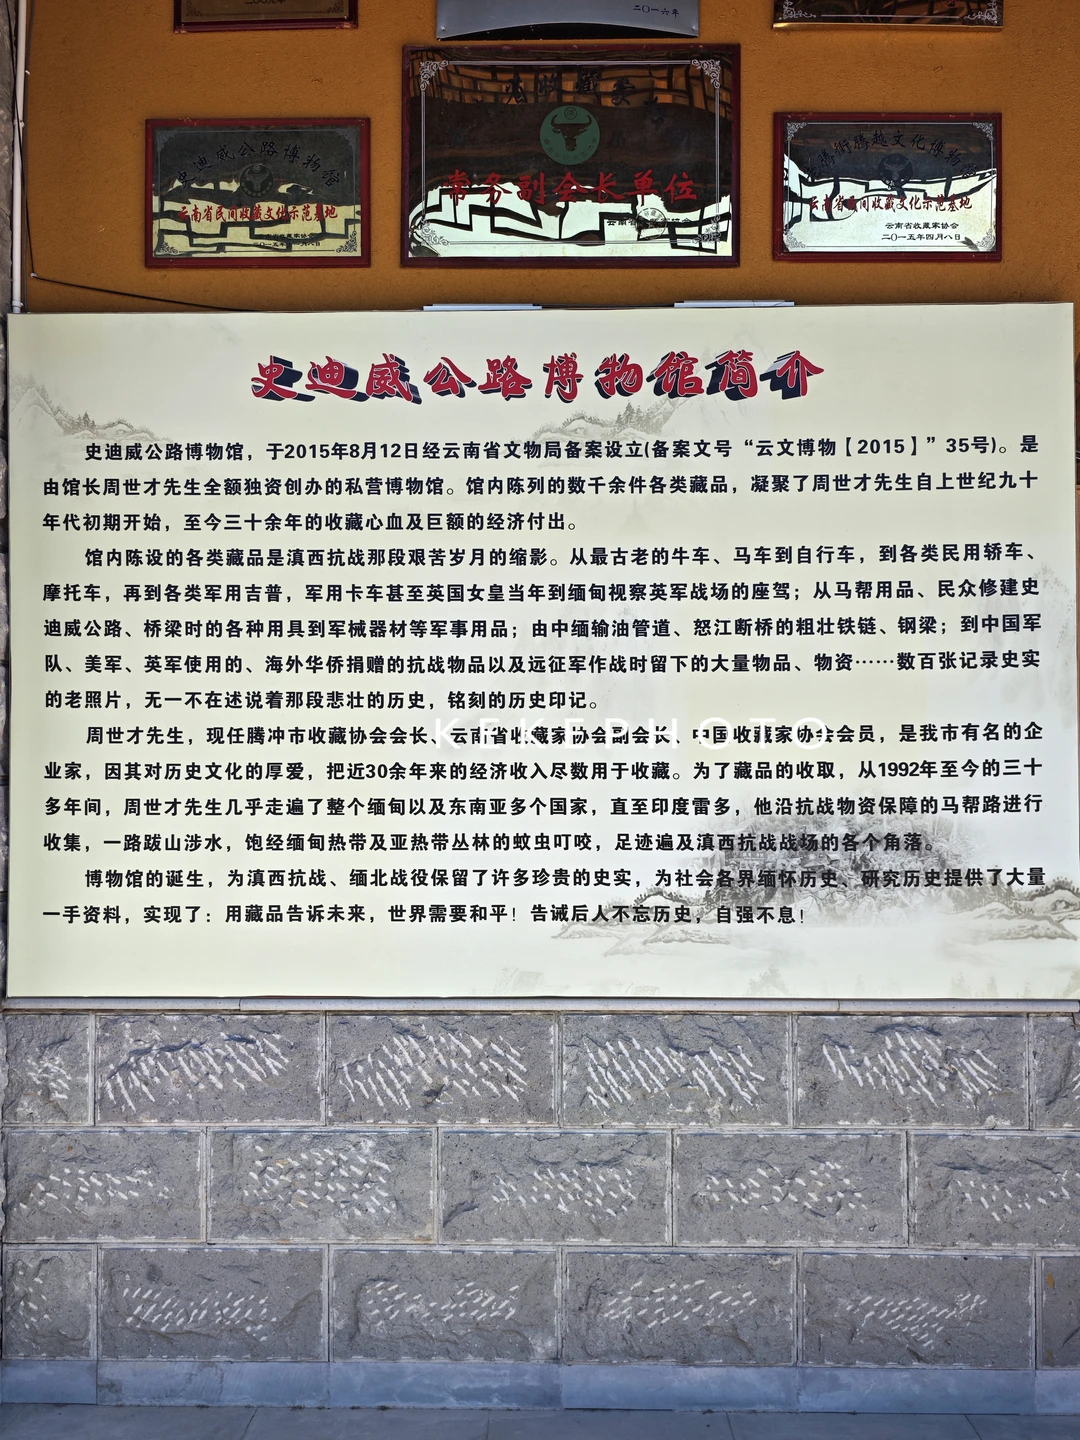 二〇一六年
省收藏家
常务副会长单位
史迪威公路博物馆
云南省民间收藏文化示范基地
腾越文化博物馆
云南省民间收藏文化示范基地
云南省收藏家协会
二〇一五年四月八日
史迪威公路博物馆简介
史迪威公路博物馆，于2015年8月12日经云南省文物局备案设立(备案文号“云文博物【2015】”35号)。是
由馆长周世才先生全额独资创办的私营博物馆。馆内陈列的数千余件各类藏品，凝聚了周世才先生自上世纪九十
年代初期开始，至今三十余年的收藏心血及巨额的经济付出。
馆内陈设的各类藏品是滇西抗战那段艰苦岁月的缩影。从最古老的牛车、马车到自行车，到各类民用轿车、
摩托车，再到各类军用吉普，军用卡车甚至英国女皇当年到缅甸视察英军战场的座驾；从马帮用品、民众修建史
迪威公路、桥梁时的各种用具到军械器材等军事用品；由中缅输油管道、怒江断桥的粗壮铁链、钢梁；到中国军
队、美军、英军使用的、海外华侨捐赠的抗战物品以及远征军作战时留下的大量物品、物资……数百张记录史实
的老照片，无一不在述说着那段悲壮的历史，铭刻的历史印记。
周世才先生，现任腾冲市收藏协会会长、云南省收藏家协会副会长、中国收藏家协会会员，是我市有名的企
业家，因其对历史文化的厚爱，把近30余年来的经济收入尽数用于收藏。为了藏品的收取，从1992年至今的三十
多年间，周世才先生几乎走遍了整个缅甸以及东南亚多个国家，直至印度雷多，他沿抗战物资保障的马帮路进行
收集，一路跋山涉水，饱经缅甸热带及亚热带丛林的蚊虫叮咬，足迹遍及滇西抗战战场的各个角落。
博物馆的诞生，为滇西抗战、缅北战役保留了许多珍贵的史实，为社会各界缅怀历史、研究历史提供了大量
一手资料，实现了：用藏品告诉未来，世界需要和平！告诫后人不忘历史，自强不息！
KEKEPHOTO